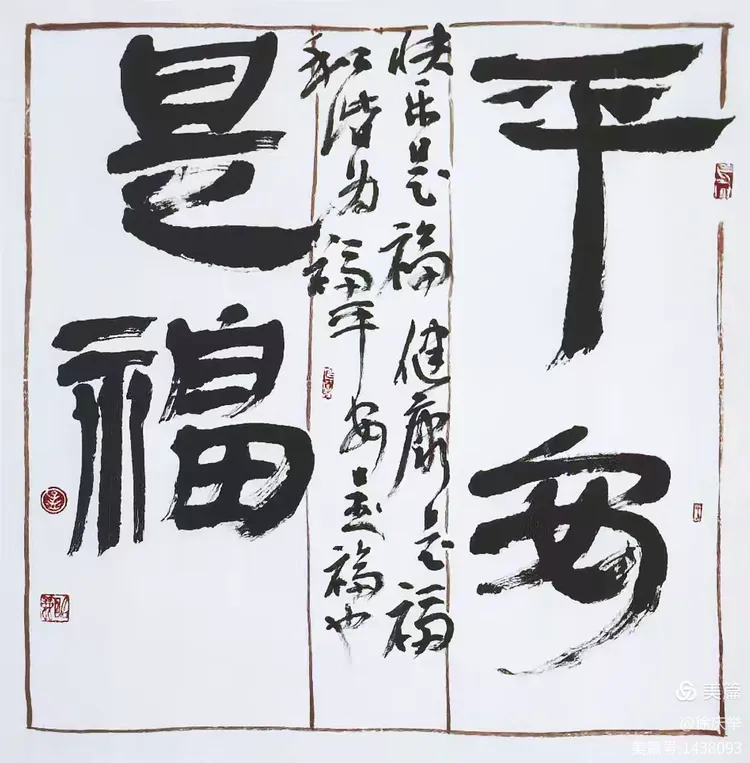 平安
快乐是福健康是福
和谐为福平安福也
是福
美篇
@徐庆举
美篇号:1438093